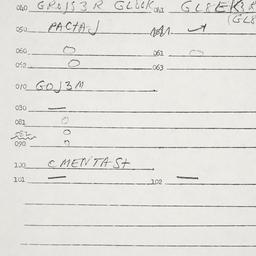 040 GROJS3R GLUCK 041 GL8EK3R
(GL8
050 PACTAJ
060 O 061 O
050 O 063
070 GOJ3M
030 —
081 O
O
090 O
100 CMENTAST
101 — 102 —